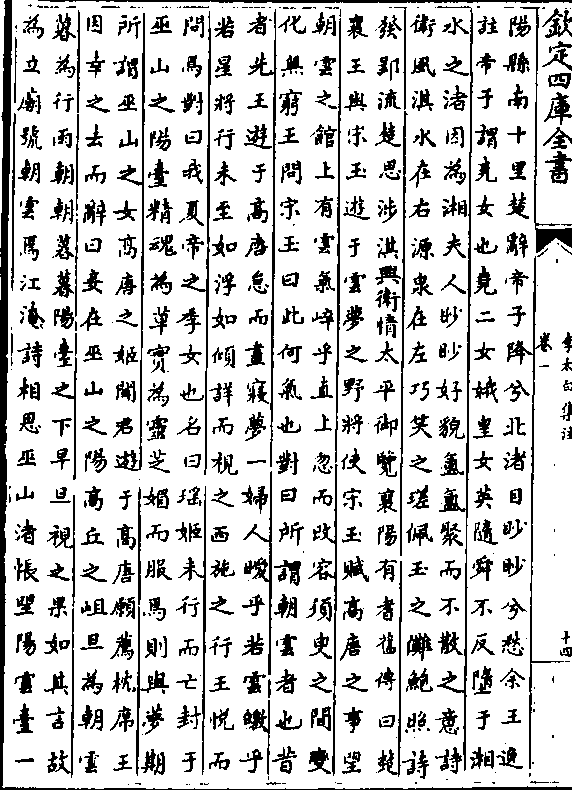 欽定四庫全書
李太白集注
卷一
十四
陽縣南十里楚辭帝子降兮北渚目眇眇兮愁余王逸
註帝子謂堯女也堯二女娥皇女英隨舜不反墮于湘
水之渚因為湘夫人眇眇好貌盈盈聚而不散之意詩
衛風淇水在右源泉在左巧笑之瑳佩玉之儺鮑照詩
發郢流楚思渉淇興衛情太平御覽襄陽有耆舊傳曰楚
襄王與宋玉遊于雲夢之野將使宋玉賦高唐之事望
朝雲之館上有雲氣崪乎直上忽而改容須臾之間變
化無窮王問宋玉曰此何氣也對曰所謂朝雲者也昔
者先王遊于高唐怠而晝寢夢一婦人曖乎若雲皪乎
若星將行未至如浮如傾詳而視之西施之行王悦而
問焉對曰我夏帝之季女也名曰瑶姬未行而亡封于
巫山之陽臺精魂為草實為靈芝媚而服焉則與夢期
所謂巫山之女髙唐之姬聞君遊于髙唐願薦枕席王
因幸之去而辭曰妾在巫山之陽高丘之岨旦為朝雲
暮為行雨朝朝暮暮陽臺之下早旦視之果如其言故
為立廟號朝雲焉江淹詩相思巫山渚悵望陽雲臺一